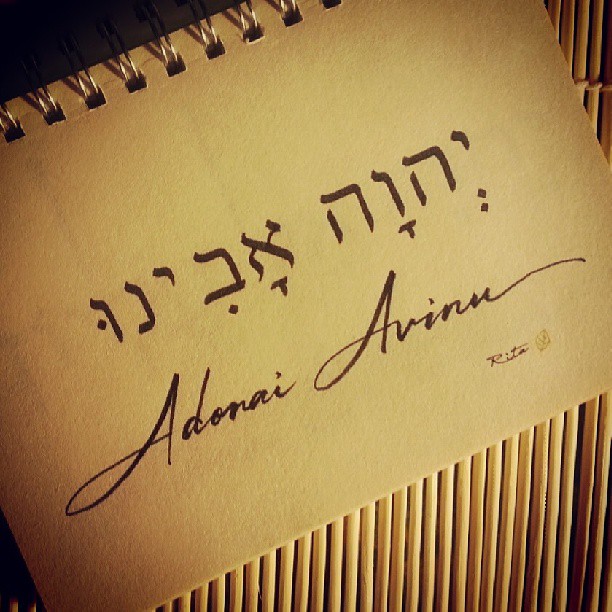 יְהוָה אָבִינוּ
Adonai Avinu
Rita